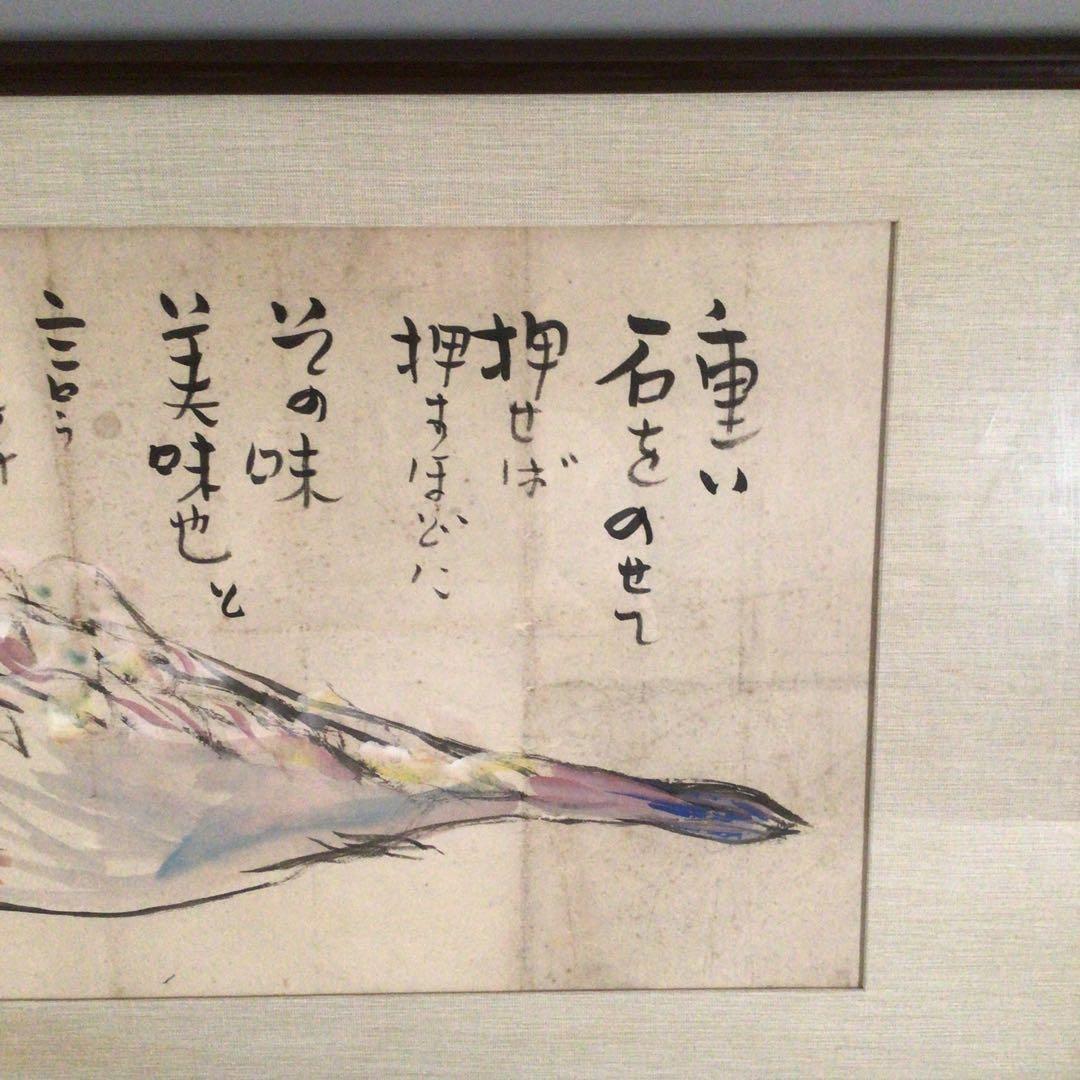 重い
石をのせて
押せば
押すほどに
その味
美味也と
言う